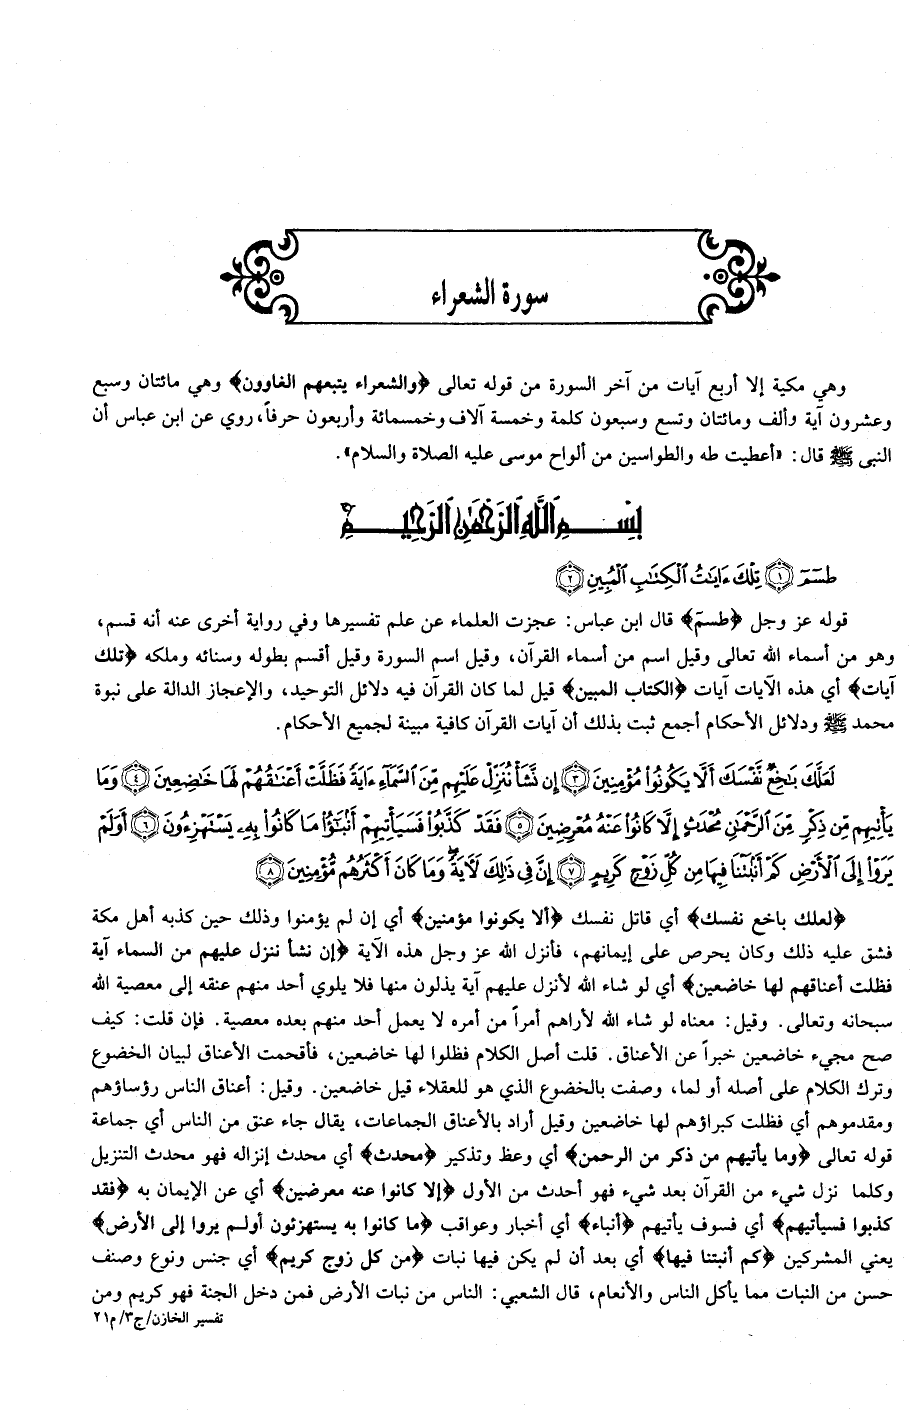 سورة الشعراء
وهي مكية إلا أربع آيات من آخر السورة من قوله تعالى ﴿والشعراء يتبعهم الغاوون﴾ وهي مائتان وسبع
وعشرون آية وألف ومائتان وتسع وسبعون كلمة وخمسة آلاف وخمسمائة وأربعون حرفاً، روي عن ابن عباس أن
النبي ﷺ قال: «أعطيت طه والطواسين من ألواح موسى عليه الصلاة والسلام».
بِسْمِ ٱللَّهِ ٱلرَّحْمَٰنِ ٱلرَّحِيمِ
طسٓمٓ ﴿١﴾ تِلْكَ ءَايَٰتُ ٱلْكِتَٰبِ ٱلْمُبِينِ ﴿٢﴾
قوله عز وجل ﴿طسمٓ﴾ قال ابن عباس: عجزت العلماء عن علم تفسيرها وفي رواية أخرى عنه أنه قسم،
وهو من أسماء الله تعالى وقيل اسم من أسماء القرآن، وقيل اسم السورة وقيل أقسم بطوله وسنائه وملكه ﴿تلك
آيات﴾ أي هذه الآيات آيات ﴿الكتاب المبين﴾ قيل لما كان القرآن فيه دلائل التوحيد، والإعجاز الدالة على نبوة
محمد ﷺ ودلائل الأحكام أجمع ثبت بذلك أن آيات القرآن كافية مبينة لجميع الأحكام.
لَعَلَّكَ بَٰخِعٌ نَّفْسَكَ أَلَّا يَكُونُوا۟ مُؤْمِنِينَ ﴿٣﴾ إِن نَّشَأْ نُنَزِّلْ عَلَيْهِم مِّنَ ٱلسَّمَآءِ ءَايَةً فَظَلَّتْ أَعْنَٰقُهُمْ لَهَا خَٰضِعِينَ ﴿٤﴾ وَمَا
يَأْتِيهِم مِّن ذِكْرٍ مِّنَ ٱلرَّحْمَٰنِ مُحْدَثٍ إِلَّا كَانُوا۟ عَنْهُ مُعْرِضِينَ ﴿٥﴾ فَقَدْ كَذَّبُوا۟ فَسَيَأْتِيهِمْ أَنۢبَٰٓؤُا۟ مَا كَانُوا۟ بِهِۦ يَسْتَهْزِءُونَ ﴿٦﴾ أَوَلَمْ
يَرَوْا۟ إِلَى ٱلْأَرْضِ كَمْ أَنۢبَتْنَا فِيهَا مِن كُلِّ زَوْجٍ كَرِيمٍ ﴿٧﴾ إِنَّ فِى ذَٰلِكَ لَءَايَةً ۖ وَمَا كَانَ أَكْثَرُهُم مُّؤْمِنِينَ ﴿٨﴾
﴿لعلك باخع نفسك﴾ أي قاتل نفسك ﴿ألا يكونوا مؤمنين﴾ أي إن لم يؤمنوا وذلك حين كذبه أهل مكة
فشق عليه ذلك وكان يحرص على إيمانهم، فأنزل الله عز وجل هذه الآية ﴿إن نشأ ننزل عليهم من السماء آية
فظلت أعناقهم لها خاضعين﴾ أي لو شاء الله لأنزل عليهم آية يذلون منها فلا يلوي أحد منهم عنقه إلى معصية الله
سبحانه وتعالى. وقيل: معناه لو شاء الله لأراهم أمراً من أمره لا يعمل أحد منهم بعده معصية. فإن قلت: كيف
صح مجيء خاضعين خبراً عن الأعناق. قلت أصل الكلام فظلوا لها خاضعين، فأقحمت الأعناق لبيان الخضوع
وترك الكلام على أصله أو لما، وصفت بالخضوع الذي هو للعقلاء قيل خاضعين. وقيل: أعناق الناس رؤساؤهم
ومقدموهم أي فظلت كبراؤهم لها خاضعين وقيل أراد بالأعناق الجماعات، يقال جاء عنق من الناس أي جماعة
قوله تعالى ﴿وما يأتيهم من ذكر من الرحمن﴾ أي وعظ وتذكير ﴿محدث﴾ أي محدث إنزاله فهو محدث التنزيل
وكلما نزل شيء من القرآن بعد شيء فهو أحدث من الأول ﴿إلا كانوا عنه معرضين﴾ أي عن الإيمان به ﴿فقد
كذبوا فسيأتيهم﴾ أي فسوف يأتيهم ﴿أنباء﴾ أي أخبار وعواقب ﴿ما كانوا به يستهزئون أولم يروا إلى الأرض﴾
يعني المشركين ﴿كم أنبتنا فيها﴾ أي بعد أن لم يكن فيها نبات ﴿من كل زوج كريم﴾ أي جنس ونوع وصنف
حسن من النبات مما يأكل الناس والأنعام، قال الشعبي: الناس من نبات الأرض فمن دخل الجنة فهو كريم ومن
تفسير الخازن/ج٣/م٢١